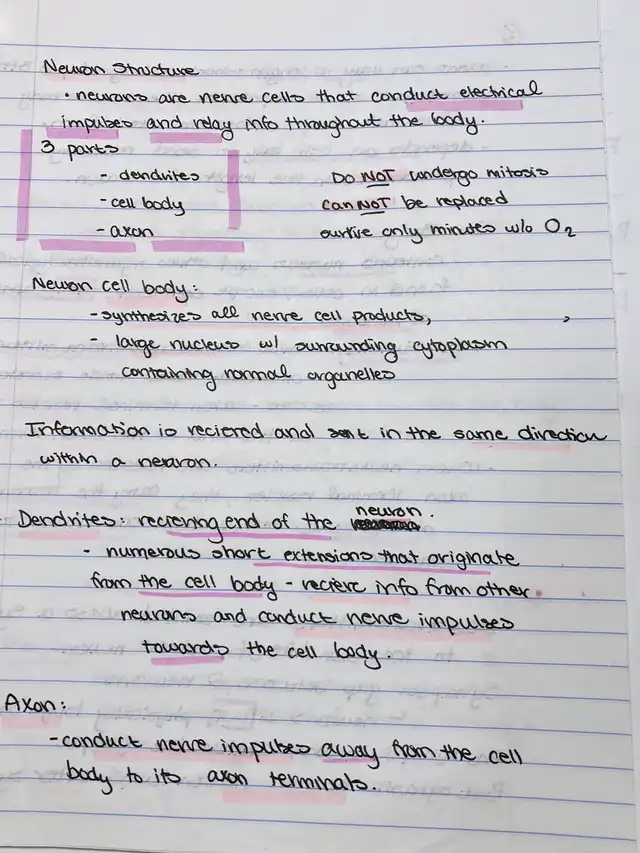 Neuron Structure
• neurons are nerve cells that conduct electrical
impulses and relay info throughout the body.
3 parts
- dendrites
- cell body
- axon
Do NOT undergo mitosis
canNOT be replaced
survive only minutes w/o O2
Neuron cell body:
- synthesizes all nerve cell products,
- large nucleus w/ surrounding cytoplasm
containing normal organelles
Information is recieved and sent in the same direction
within a neuron.
Dendrites: recieving end of the neuron.
- numerous short extensions that originate
from the cell body - recieve info from other
neurons and conduct nerve impulses
towards the cell body.
Axon:
- conduct nerve impulses away from the cell
body to its axon terminals.